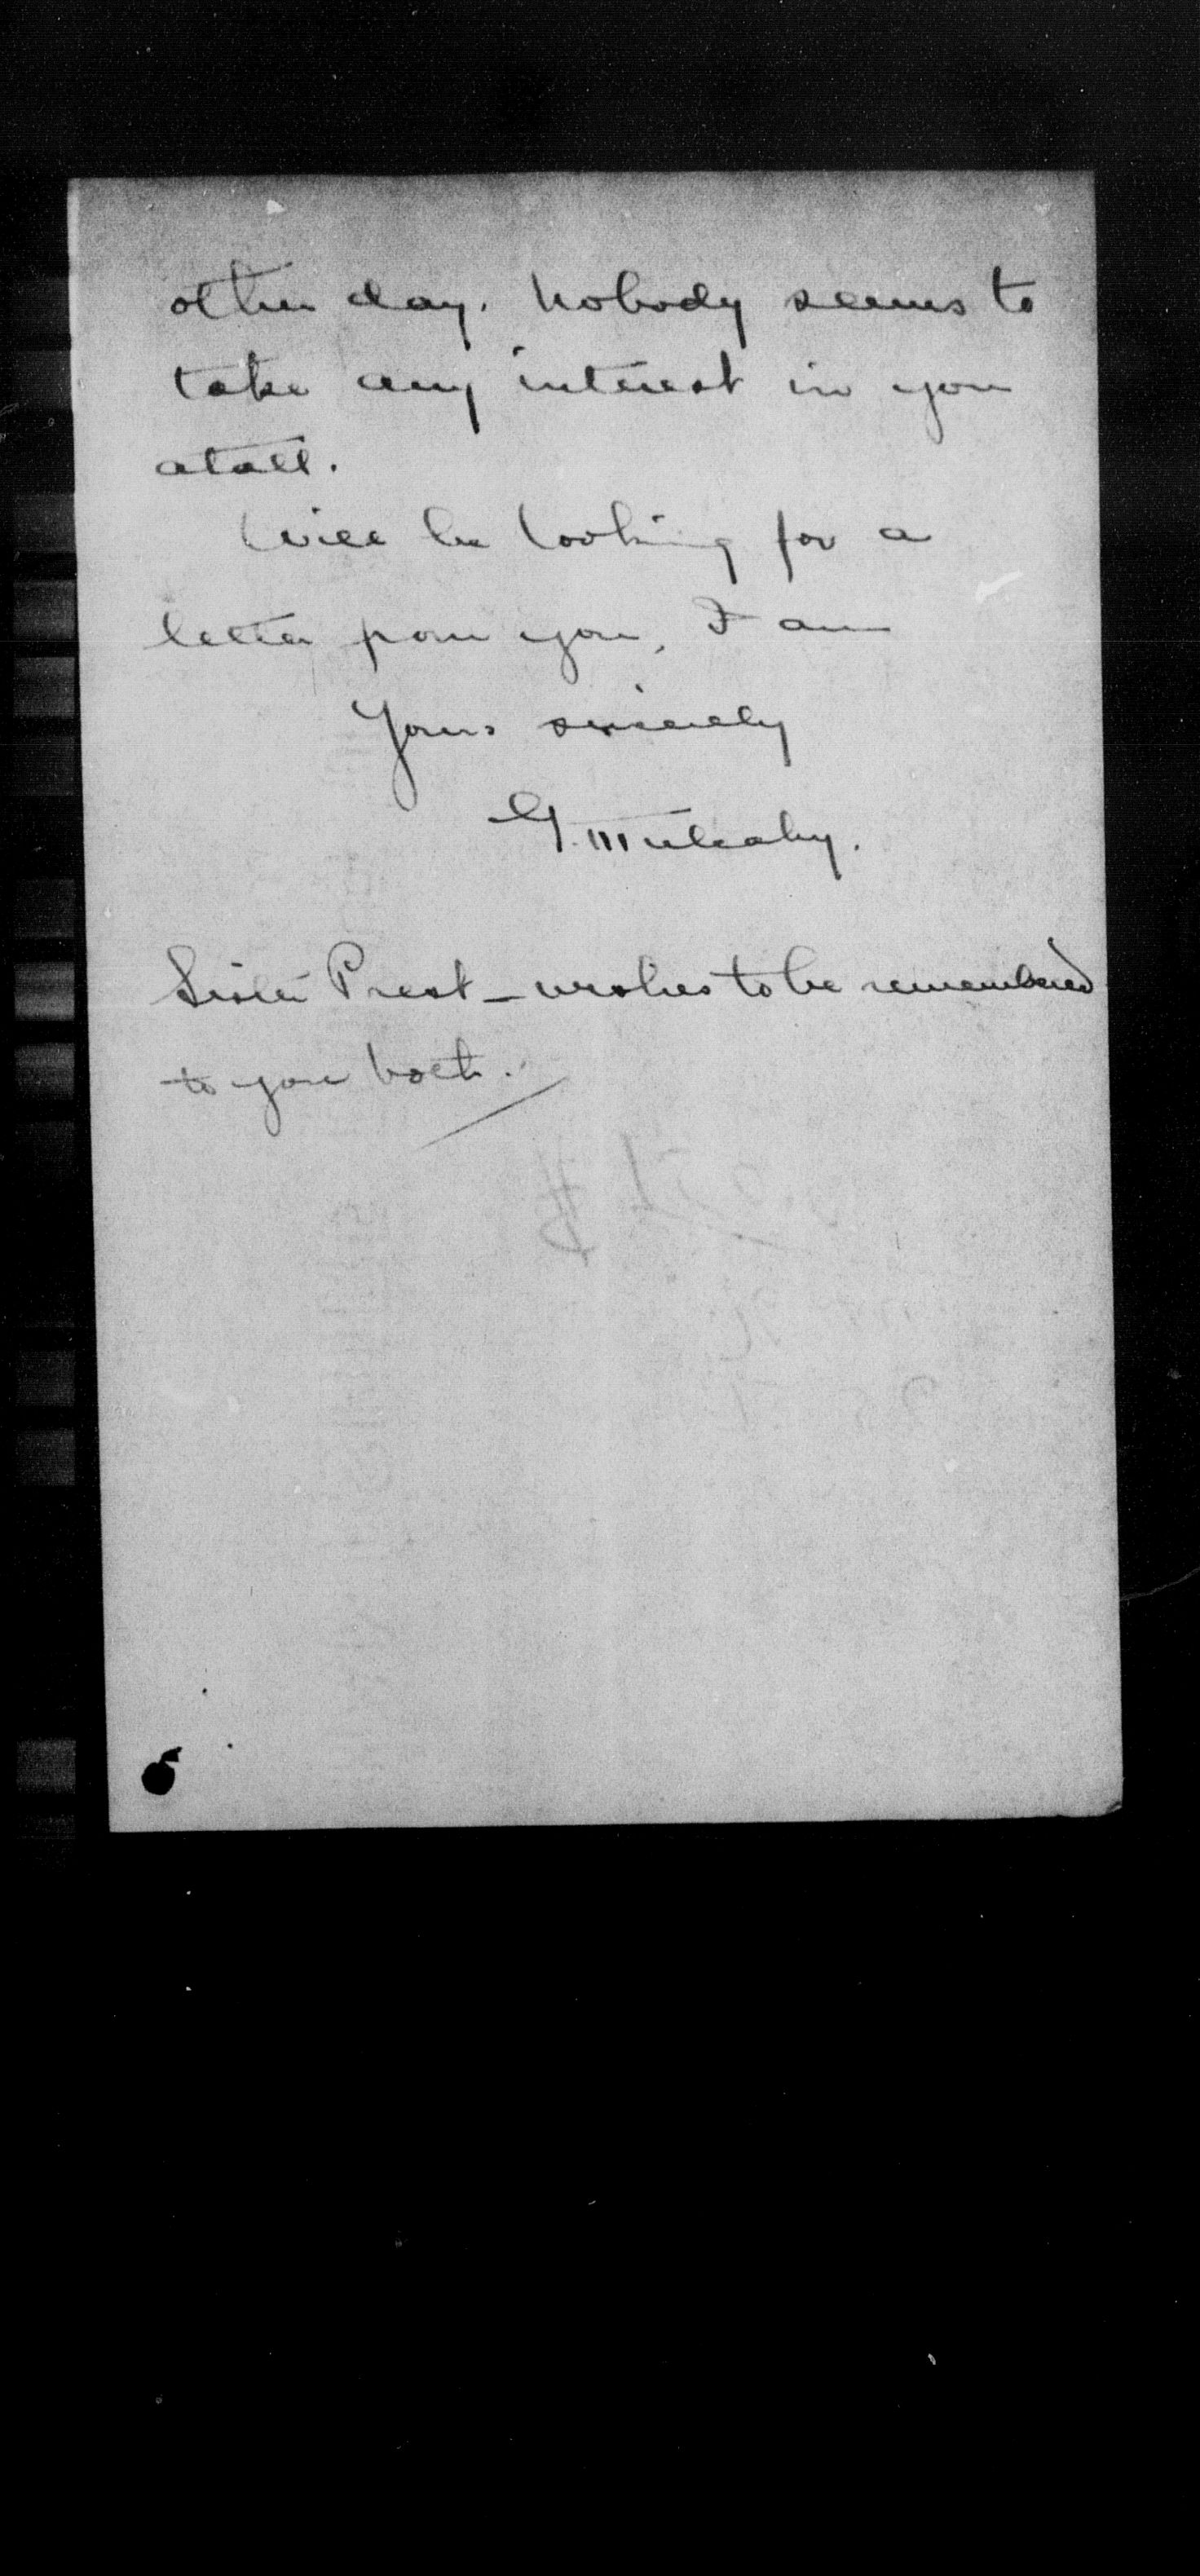 other day. Nobody seems to
take any interest in you
atall.
Will be looking for a
letter from you, I am
Yours sincerely
G. Mulcahy.
Sister Prest - wishes to be remembered
to you both.